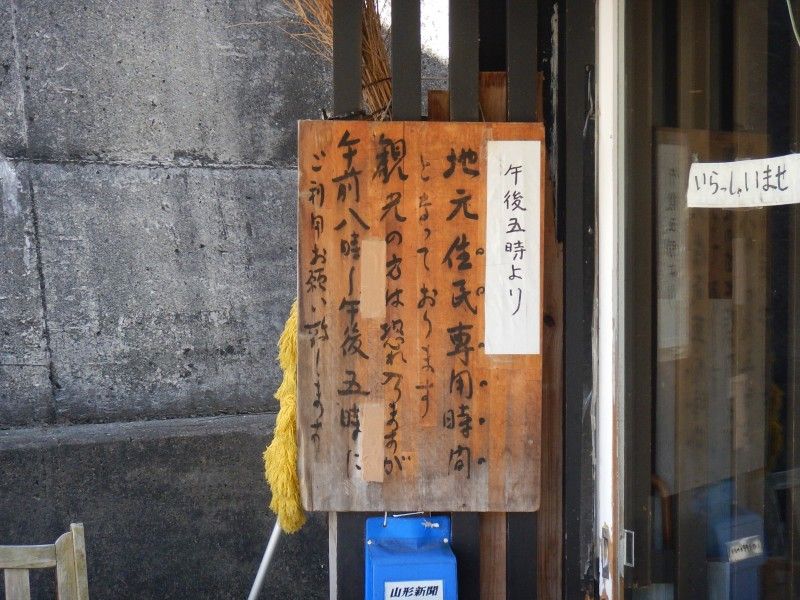 午後五時より
地元住民専用時間
となっております
観光の方は恐れ入りますが
午前八時～午後五時に
ご利用お願い致します
いらっしゃいませ
山形新聞